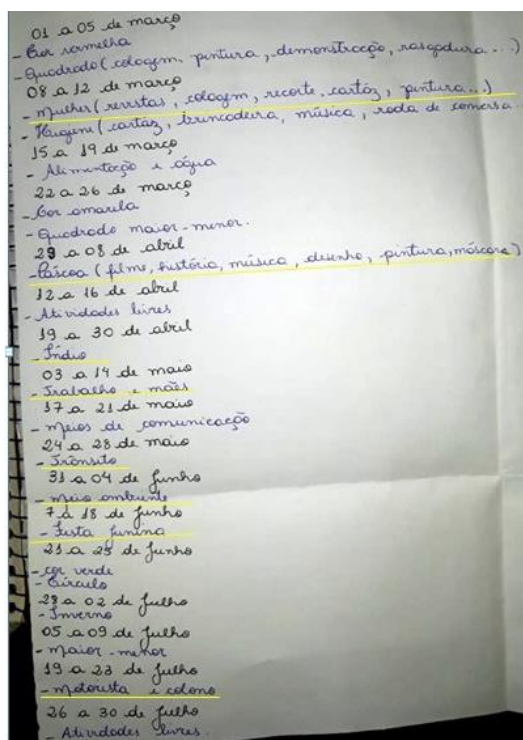 01 a 05 de março
- Cor vermelha
- Quadrado (colagem, pintura, demonstração, rasgadura...)
08 a 12 de março
- Mulher (revistas, colagem, recorte, cartáz, pintura...)
- Higiene (cartáz, brincadeira, música, roda de conversa.
15 a 19 de março
- Alimentação e água
22 a 26 de março
- Cor amarela
- Quadrado maior-menor.
29 a 08 de abril
- Páscoa (filme, história, música, desenho, pintura, máscara)
12 a 16 de abril
- Atividades livres
19 a 30 de abril
- Índio
03 a 14 de maio
- Trabalho e mães
17 a 21 de maio
- Meios de comunicação
24 a 28 de maio
- Trânsito
31 a 04 de Junho
- Meio ambiente
7 a 18 de Junho
- Festa junina
21 a 25 de Junho
- cor verde
- Círculo
28 a 02 de Julho
- Inverno
05 a 09 de Julho
- Maior-menor
19 a 23 de Julho
- Motorista e colono
26 a 30 de Julho
- Atividades livres.